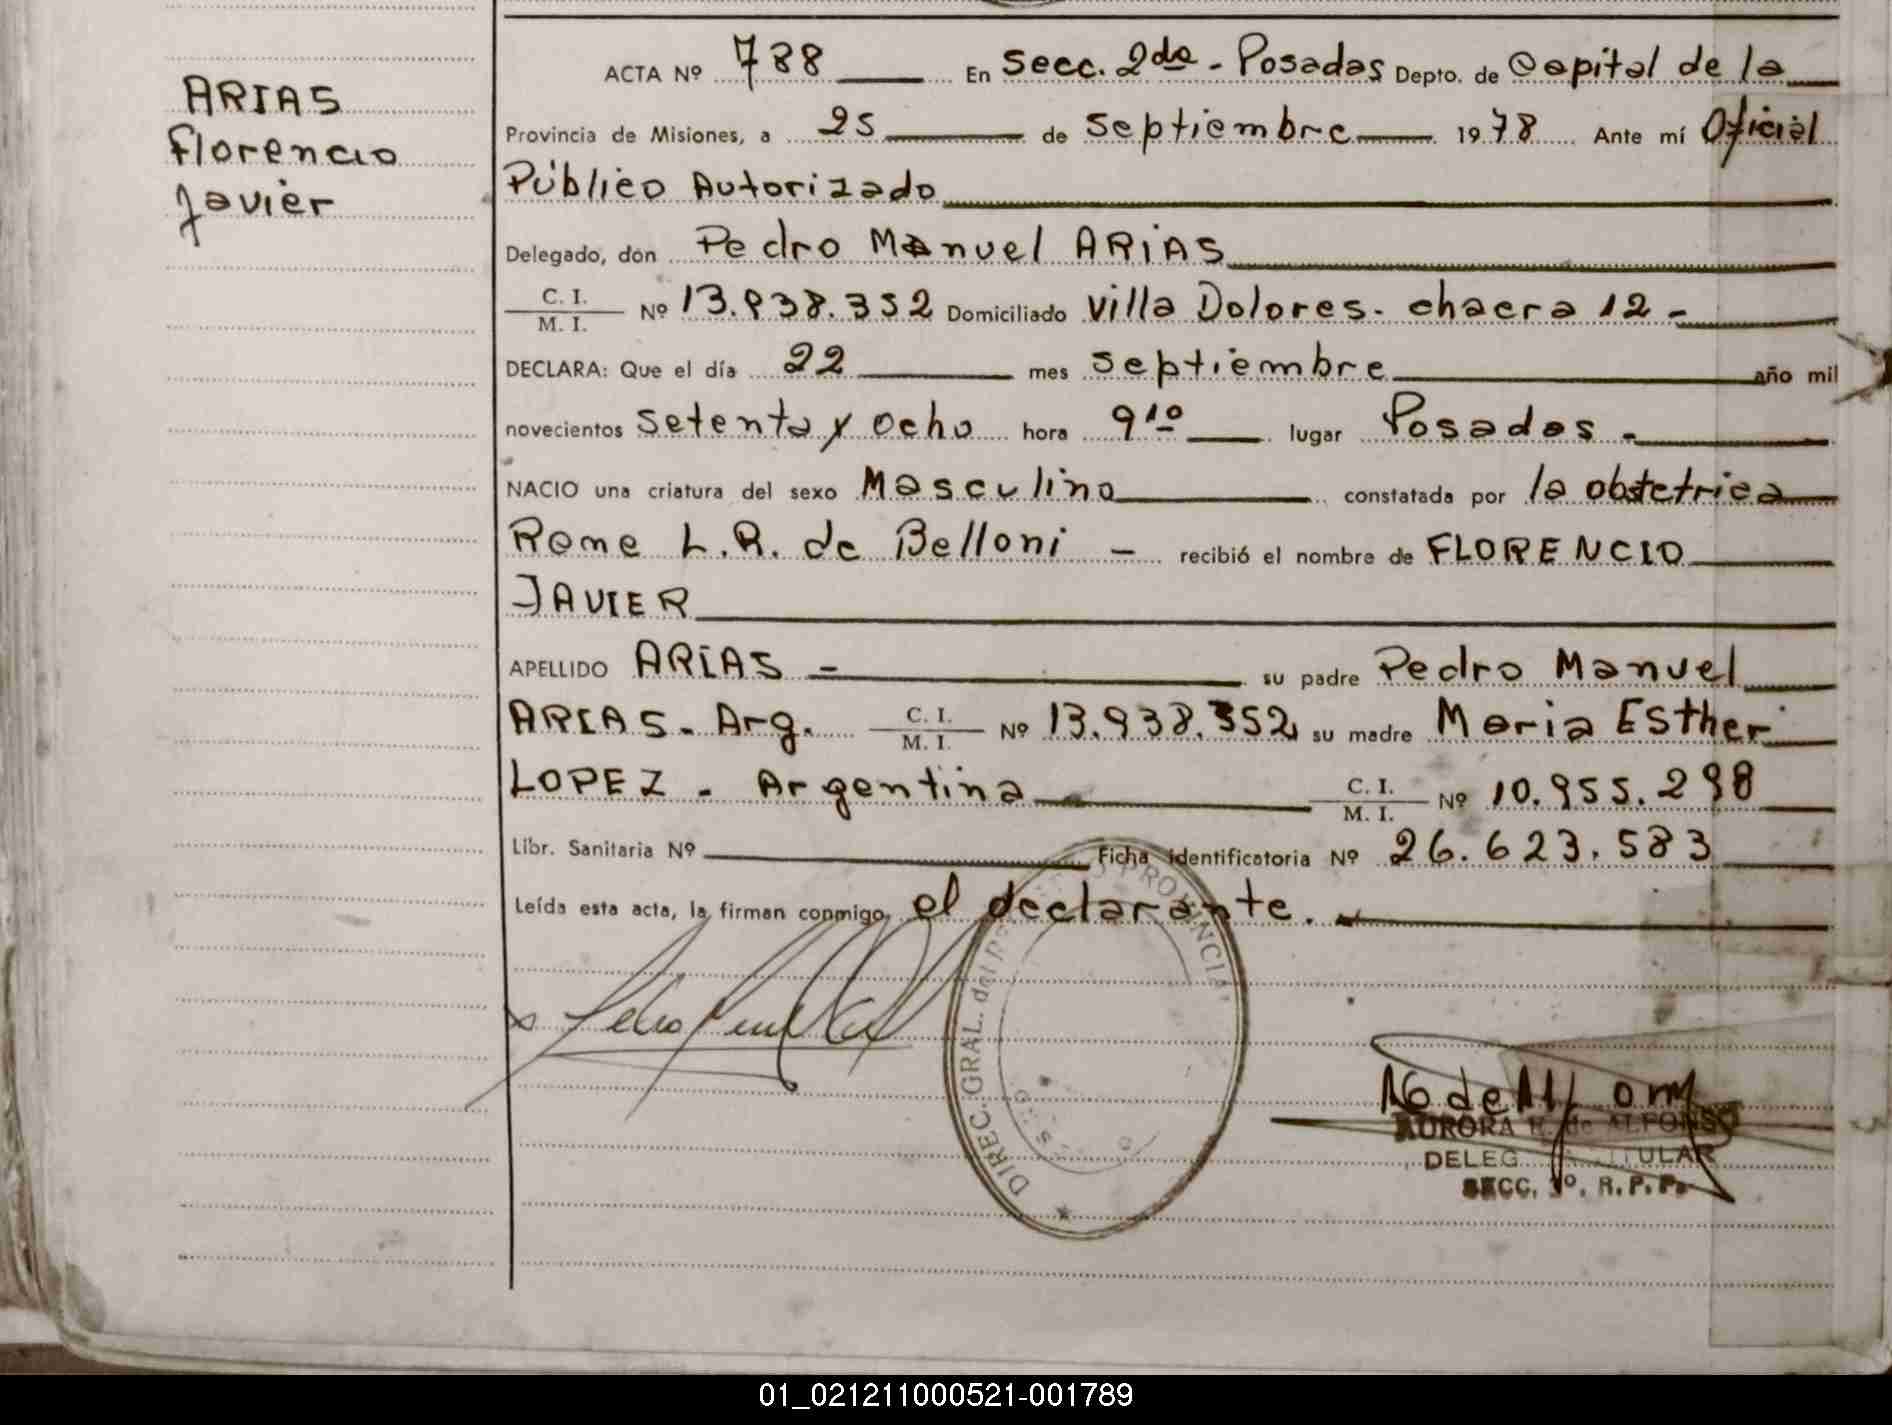 ARIAS
Florencio
Javier
ACTA Nº 788 En Secc. 2da - Posadas Depto. de Capital de la
Provincia de Misiones, a 25 de septiembre 1978 Ante mí Oficial
Público Autorizado
Delegado, don Pedro Manuel ARIAS
C. I.
M. I. Nº 13.938.352 Domiciliado Villa Dolores - chacra 12 -
DECLARA: Que el día 22 mes septiembre año mil
novecientos setenta y ocho hora 9 10 lugar Posadas -
NACIO una criatura del sexo Masculino constatada por la obstetrica
Rene L.R. de Belloni - recibió el nombre de FLORENCIO
JAVIER
APELLIDO ARIAS - su padre Pedro Manuel
ARIAS - Arg. C. I.
M. I. Nº 13.938.352 su madre Maria Esther
LOPEZ - Argentina C. I.
M. I. Nº 10.955.298
Libr. Sanitaria Nº Ficha identificatoria Nº 26.623.583
Leída esta acta, la firman conmigo, el declarante.
DIREC. GRAL. del PROVINCIA
AURORA R. de ALFONSO
DELEG TITULAR
SECC. R.P.P.
01_021211000521-001789